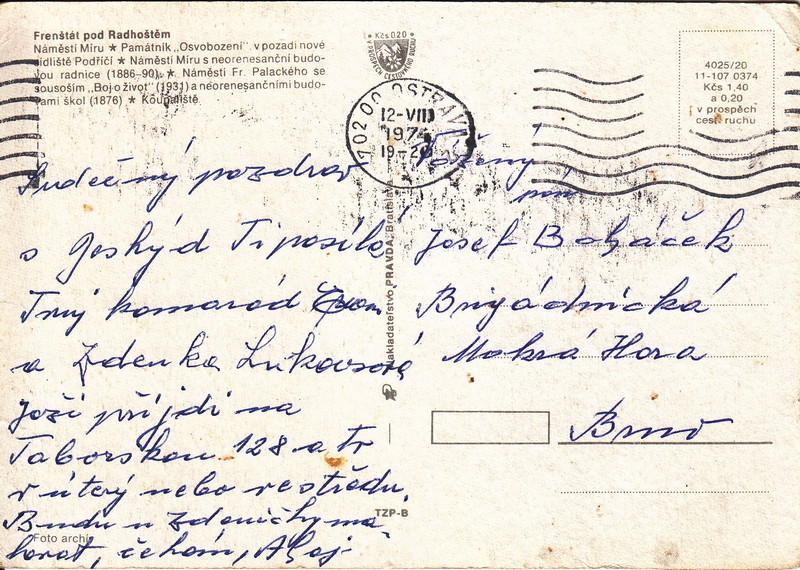 Frenštát pod Radhoštěm
Náměstí Míru ★ Památník „Osvobození" v pozadí nové
sídliště Podříčí ★ Náměstí Míru s neorenesanční budo-
vou radnice (1886–90) ★ Náměstí Fr. Palackého se
sousoším „Boj o život" (1931) a neorenesančními budo-
vami škol (1876) ★ Koupaliště
Kčs 0,20
V PROSPĚCH CESTOVNÍHO RUCHU
702 00 OSTRAVA
12-VIII
197
19-20
4025/20
11-107 0374
Kčs 1,40
a 0,20
v prospěch
cest. ruchu
Srdečný pozdrav
s Beskyd Ti posílá
Tvůj kamarád
a Zdenka Lukasová
Joži příjdi na
Taborskou 128 a tr
v úterý nebo ve středu.
Budu u Zdeničky ma
lovat, čekám, Ahoj
Vážený
pán
Josef Boháček
Brigádnická
Mokrá Hora
Brno
Nakladateľstvo PRAVDA, Bratislava
TZP-B
Foto archív